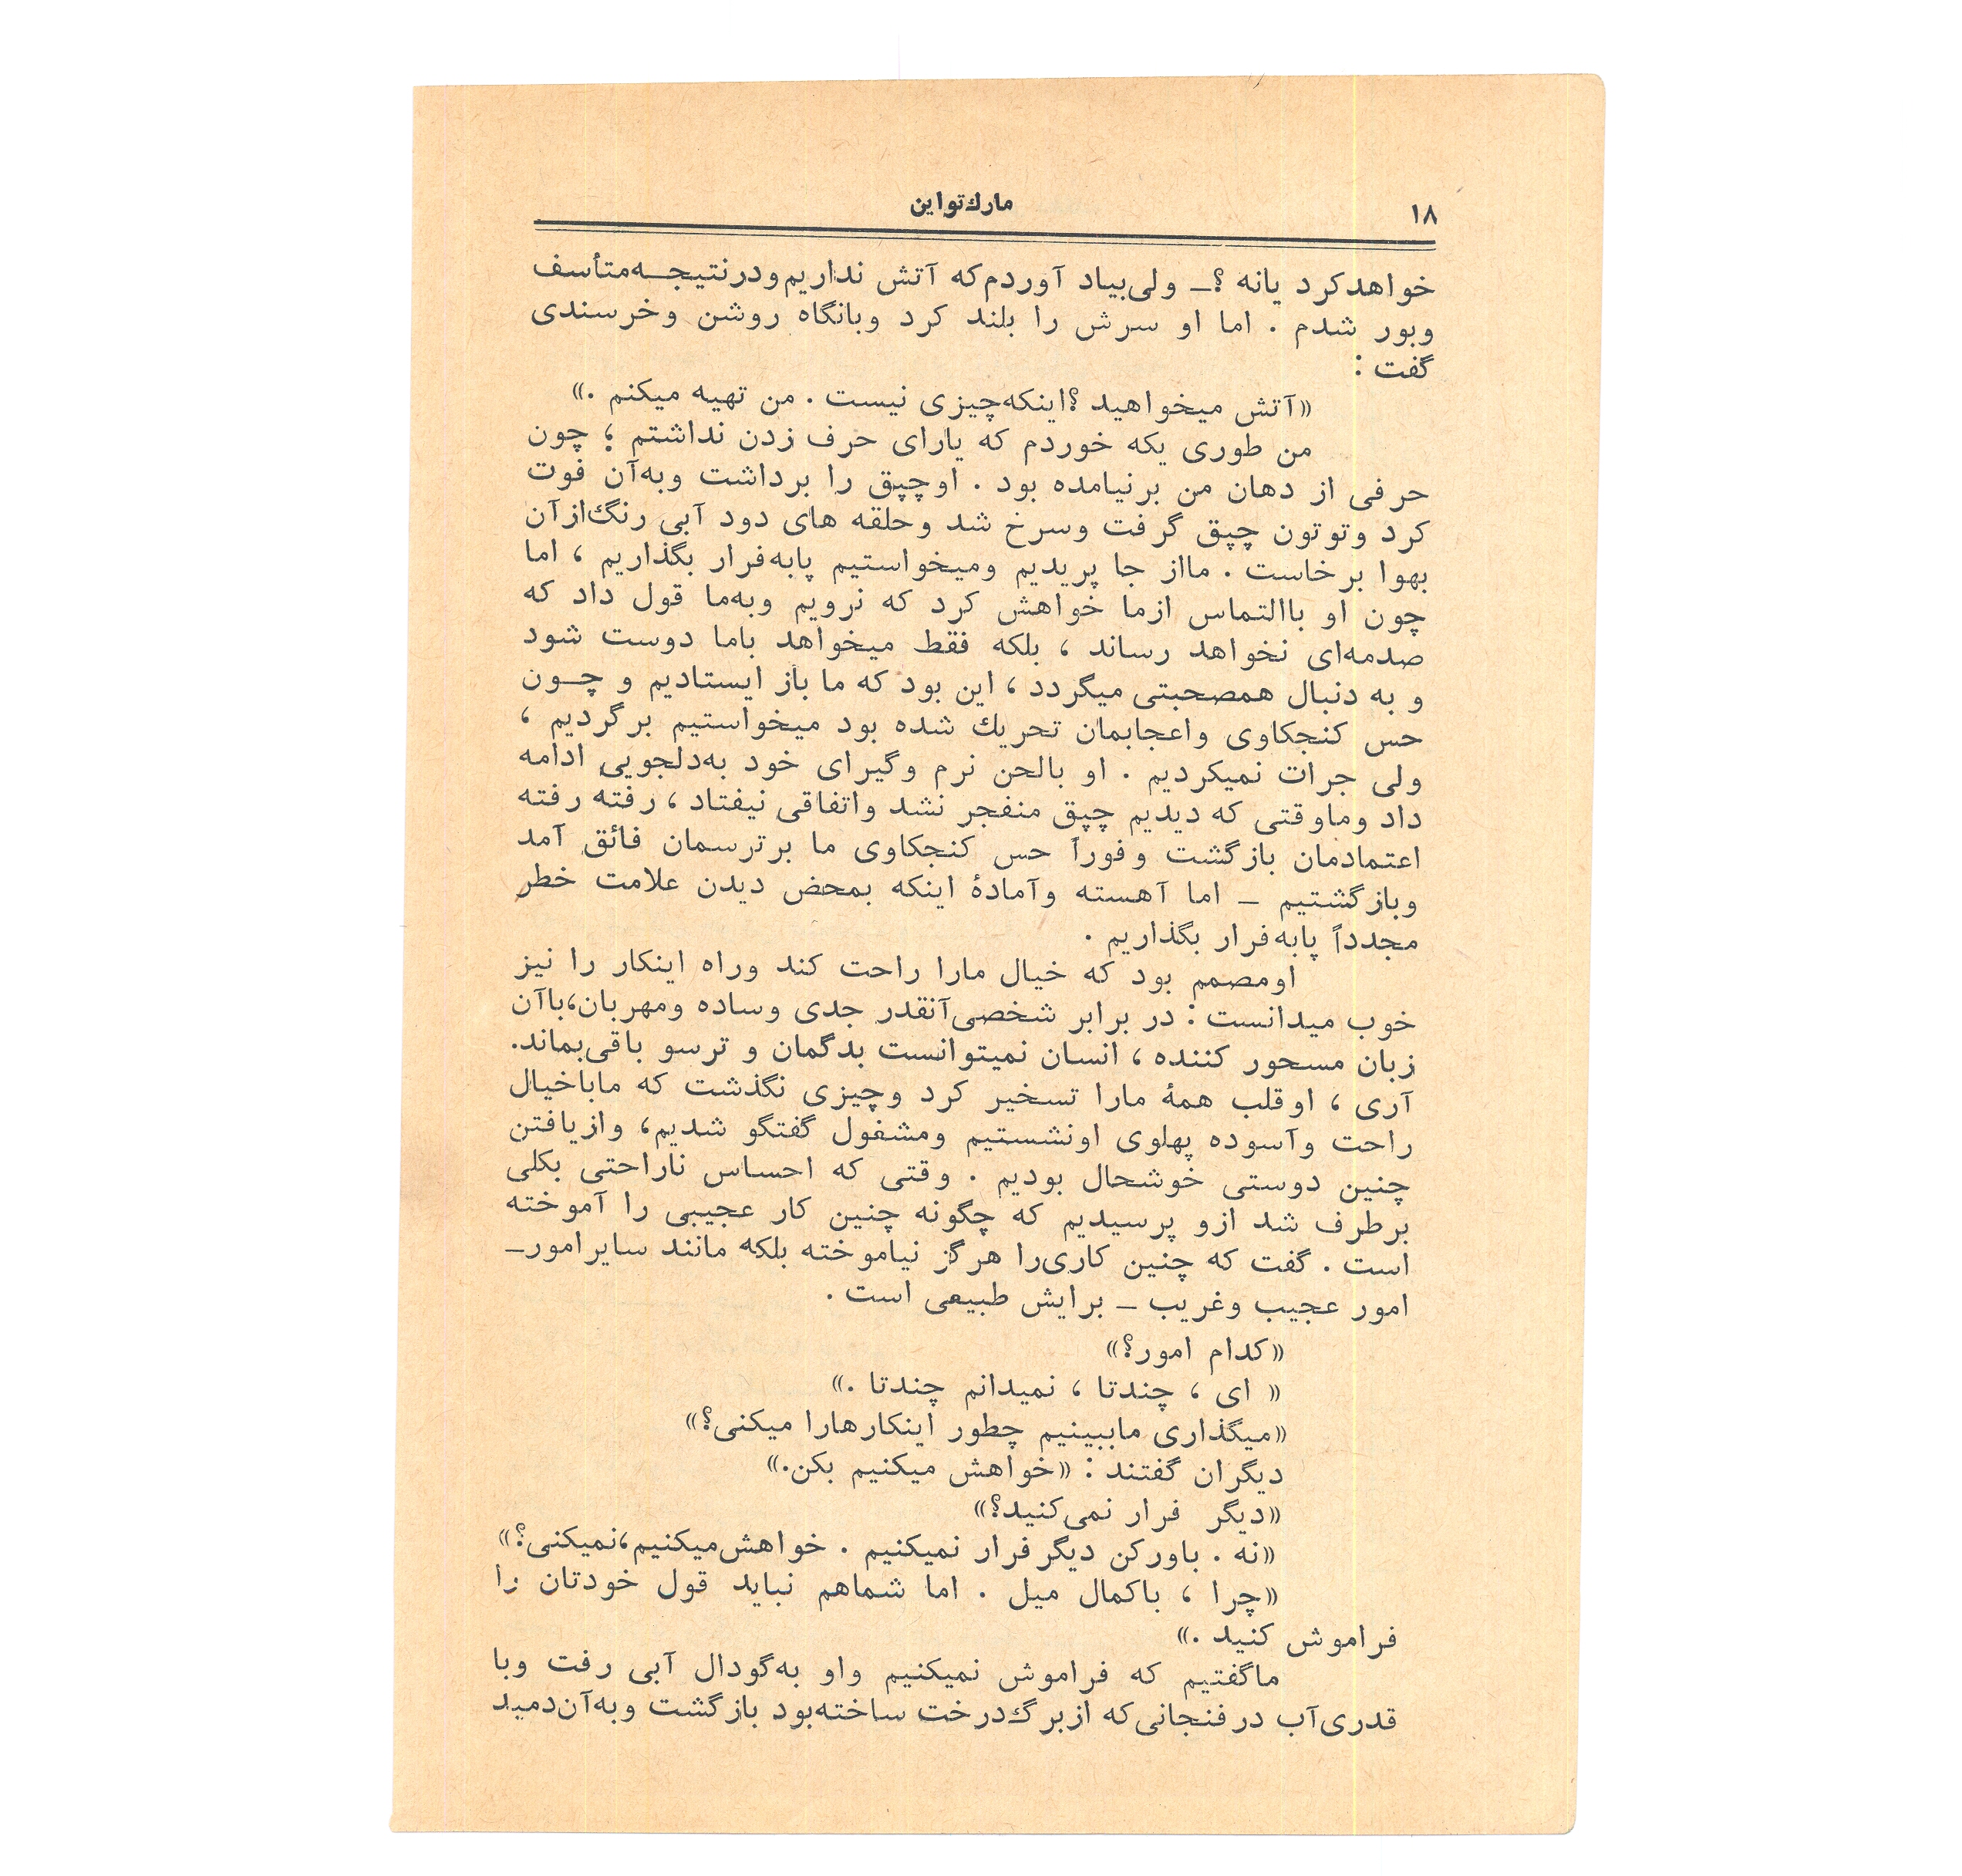 ۱۸
مارك‌تواین
خواهدکرد یانه ؟ــ ولی‌بیاد آوردم‌که آتش نداریم‌ودرنتیجــه‌متأسف
وبور شدم . اما او سرش را بلند کرد وبانگاه روشن وخرسندی
گفت :
«آتش میخواهید ؟اینکه‌چیزی نیست . من تهیه میکنم .»
من طوری یکه خوردم که یارای حرف زدن نداشتم ؛ چون
حرفی از دهان من برنیامده بود . اوچپق را برداشت وبه‌آن فوت
کرد وتوتون چپق گرفت وسرخ شد وحلقه های دود آبی رنگ‌ازآن
بهوا برخاست . مااز جا پریدیم ومیخواستیم پابه‌فرار بگذاریم ، اما
چون او باالتماس ازما خواهش کرد که نرویم وبه‌ما قول داد که
صدمه‌ای نخواهد رساند ، بلکه فقط میخواهد باما دوست شود
و به دنبال همصحبتی میگردد ، این بود که ما باز ایستادیم و چــون
حس کنجکاوی واعجابمان تحریك شده بود میخواستیم برگردیم ،
ولی جرات نمیکردیم . او بالحن نرم وگیرای خود به‌دلجویی ادامه
داد وماوقتی که دیدیم چپق منفجر نشد واتفاقی نیفتاد ، رفته رفته
اعتمادمان بازگشت وفوراً حس کنجکاوی ما برترسمان فائق آمد
وبازگشتیم ــ اما آهسته وآمادهٔ اینکه بمحض دیدن علامت خطر
مجدداً پابه‌فرار بگذاریم .
اومصمم بود که خیال مارا راحت کند وراه اینکار را نیز
خوب میدانست : در برابر شخصی‌آنقدر جدی وساده ومهربان،باآن
زبان مسحور کننده ، انسان نمیتوانست بدگمان و ترسو باقی‌بماند.
آری ، اوقلب همهٔ مارا تسخیر کرد وچیزی نگذشت که ماباخیال
راحت وآسوده پهلوی اونشستیم ومشغول گفتگو شدیم، وازیافتن
چنین دوستی خوشحال بودیم . وقتی که احساس ناراحتی بکلی
برطرف شد ازو پرسیدیم که چگونه چنین کار عجیبی را آموخته
است . گفت که چنین کاری‌را هرگز نیاموخته بلکه مانند سایرامور‌ــ
امور عجیب وغریب ــ برایش طبیعی است .
«کدام امور؟»
« ای ، چندتا ، نمیدانم چندتا .»
«میگذاری ماببینیم چطور اینکارهارا میکنی؟»
دیگران گفتند : «خواهش میکنیم بکن.»
«دیگر فرار نمی‌کنید؟»
«نه . باورکن دیگر فرار نمیکنیم . خواهش‌میکنیم،نمیکنی؟»
«چرا ، باکمال میل . اما شماهم نباید قول خودتان را
فراموش کنید .»
ماگفتیم که فراموش نمیکنیم واو به‌گودال آبی رفت وبا
قدری‌آب درفنجانی‌که ازبرگ‌درخت ساخته‌بود بازگشت وبه‌آن‌دمید